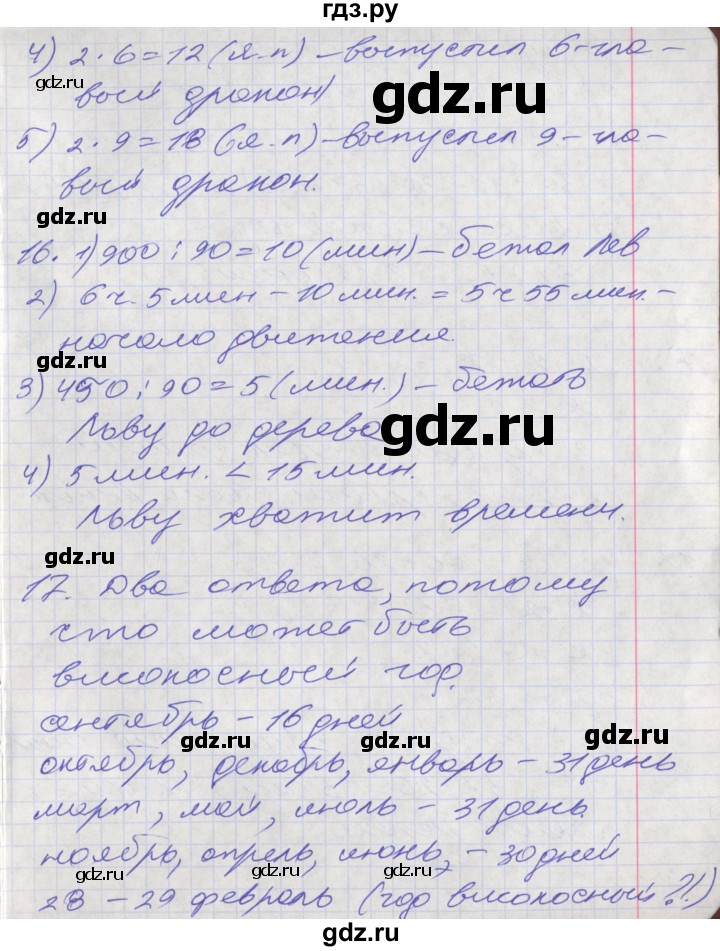 гдз.ру
4) 2 · 6 = 12 (я. п) – выпустил 6-гла-
вый дракон)
gdz.ru
5) 2 · 9 = 18 (я. п) – выпустил 9-гла-
вый дракон.
gdz.ru
16. 1) 900 : 90 = 10 (мин) – бежал Лев
2) 6 ч. 5 мин – 10 мин. = 5 ч 55 мин. –
начало движения.
gdz.ru
3) 450 : 90 = 5 (мин.) – бежать
Льву до дерева
gdz.ru
4) 5 мин. < 15 мин.
Льву хватит времени.
gdz.ru
17. Два ответа, потому
что может быть
високосный год.
сентябрь – 16 дней
gdz.ru
gdz.ru
октябрь, декабрь, январь – 31 день
март, май, июль – 31 день.
ноябрь, апрель, июнь, – 30 дней
gdz.ru
gdz.ru
28 – 29 февраль (год високосный?!)
gdz.ru